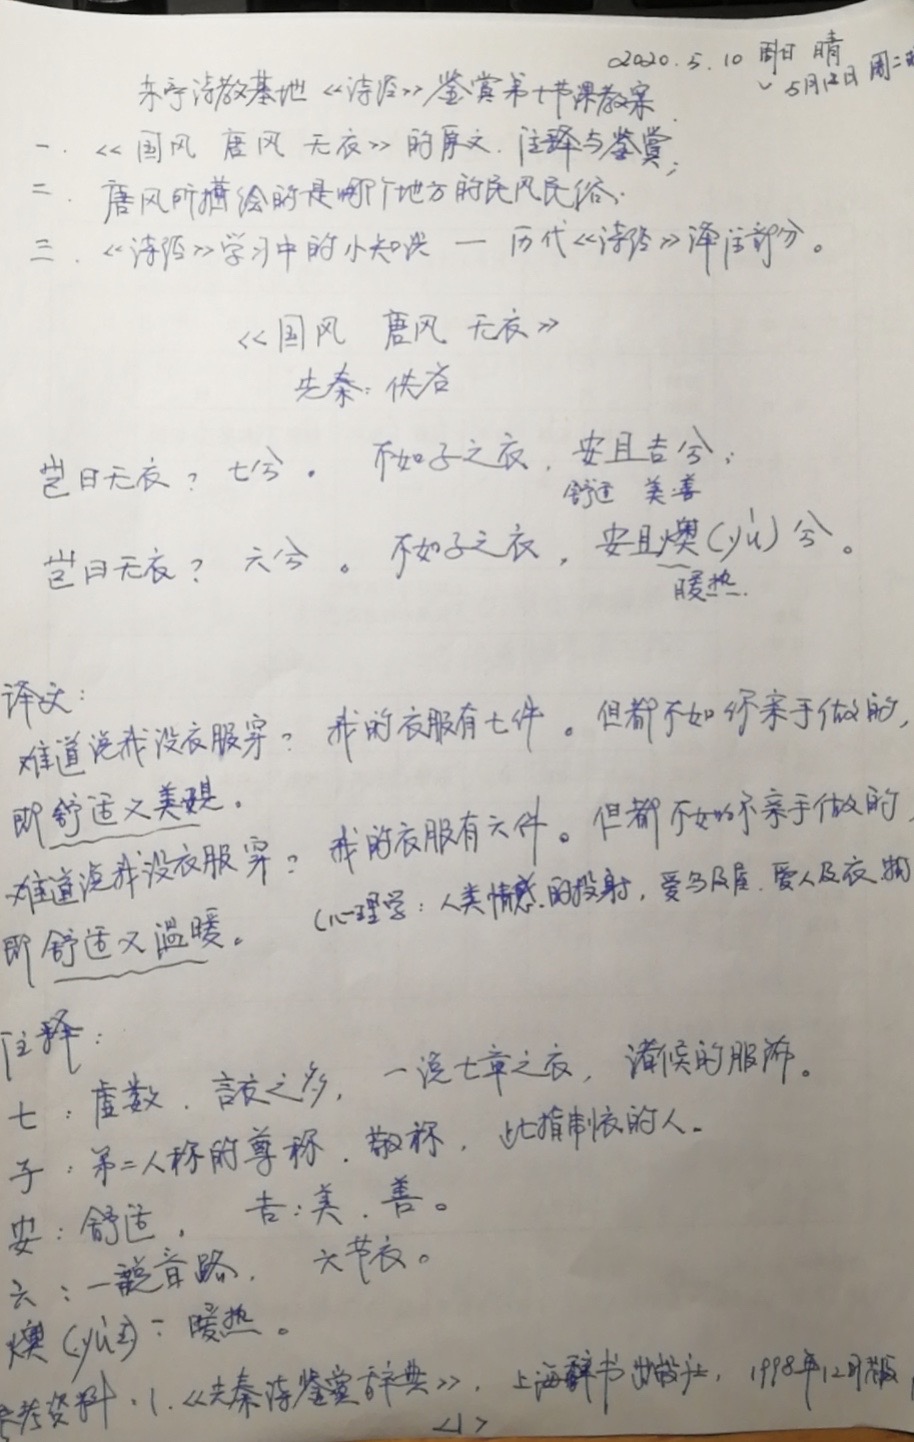 2020.5.10 周日 晴
5月12日 周二
东宁诗教基地《诗经》鉴赏第七节课教案
一. 《国风 唐风 无衣》的原文. 注释与鉴赏;
二. 唐风所描绘的是哪个地方的民风民俗.
三. 《诗经》学习中的小知识 — 历代《诗经》译注部分。
《国风 唐风 无衣》
先秦: 佚名
岂曰无衣? 七兮。 不如子之衣, 安且吉兮;
舒适 美善
岂曰无衣? 六兮。 不如子之衣, 安且燠(yù)兮。
暖热.
译文:
难道说我没衣服穿? 我的衣服有七件。但都不如你亲手做的,
即舒适又美观。
难道说我没衣服穿? 我的衣服有六件。但都不如你亲手做的,
(心理学: 人类情感的投射, 爱乌及屋. 爱人及衣物
即舒适又温暖。
注释:
七: 虚数. 言衣之多, 一说七章之衣, 诸侯的服饰。
子: 第二人称的尊称. 敬称, 此指制衣的人.
安: 舒适, 吉: 美. 善。
六: 一说音路, 六节衣。
燠(yù): 暖热。
参考资料: 1.《先秦诗鉴赏辞典》, 上海辞书出版社, 1998年12月版
<1>